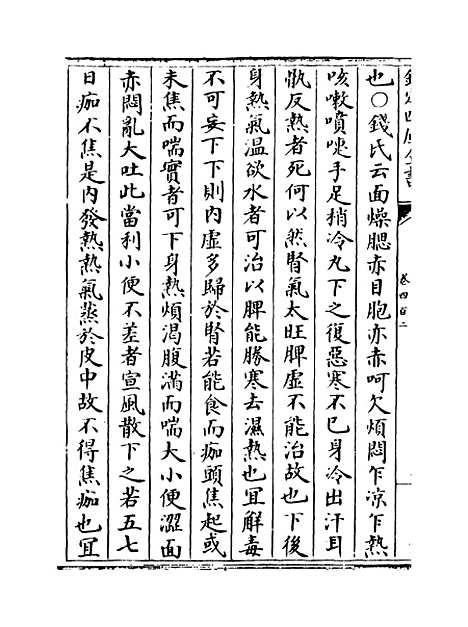 欽定四庫全書
卷四百二
也○錢氏云面燥腮赤目胞亦赤呵欠煩悶乍涼乍熱
咳嗽噴嚏手足稍冷丸下之復惡寒不已身冷出汗耳
骩反熱者死何以然腎氣太旺脾虛不能治故也下後
身熱氣温欲水者可治以脾能勝寒去濕熱也宜解毒
不可妄下下則内虛多歸於腎若能食而痂頭焦起或
未焦而喘實者可下身熱煩渴腹滿而喘大小便澀面
赤悶亂大吐此當利小便不差者宣風散下之若五七
日痂不焦是内發熱熱氣蒸於皮中故不得焦痂也宜